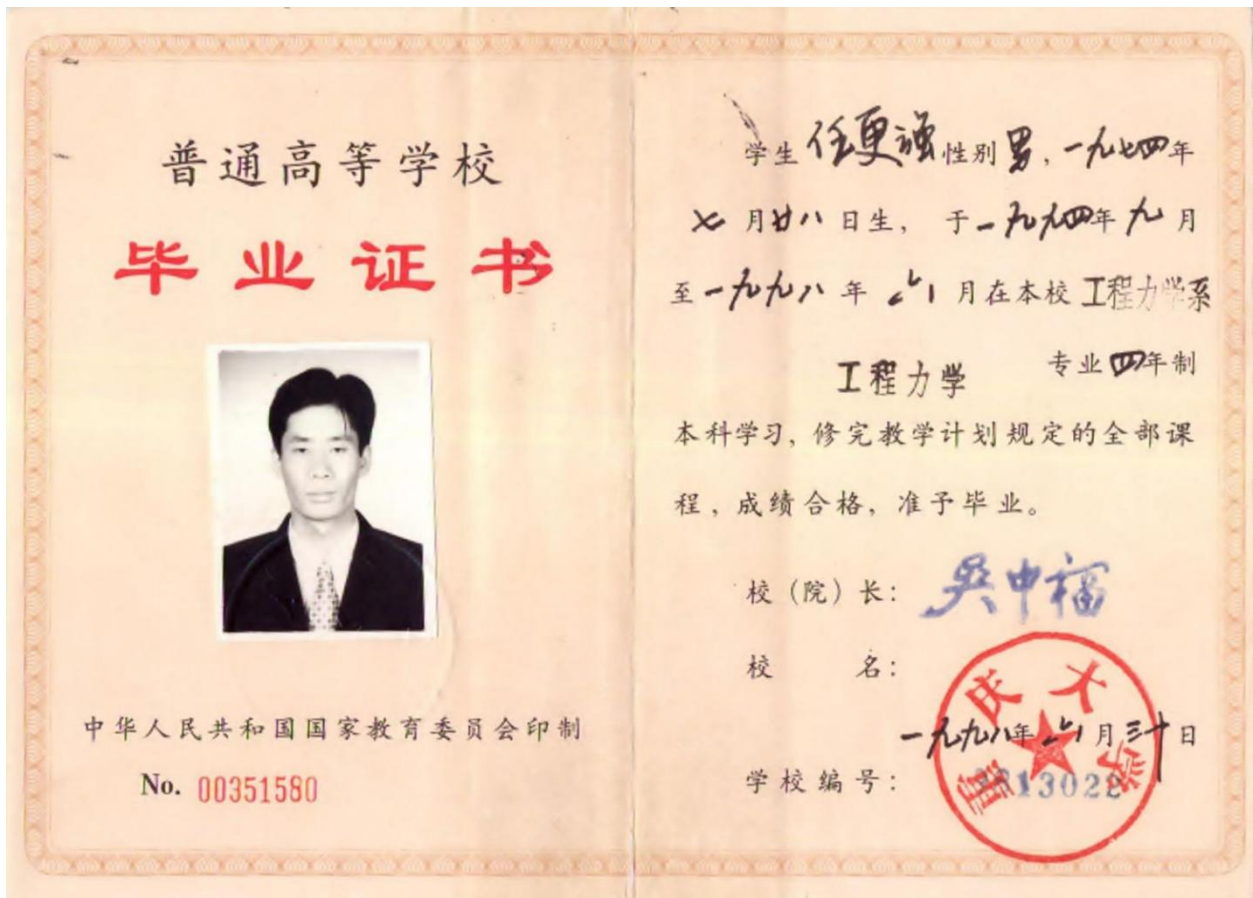 普通高等学校
毕业证书
中华人民共和国国家教育委员会印制
No. 00351580
学生 任更强 性别 男，一九七四年
七月廿八日生，于一九九四年九月
至一九九八年六月在本校 工程力学系
工程力学 专业四年制
本科学习，修完教学计划规定的全部课
程，成绩合格，准予毕业。
校（院）长：吴中福
校 名：
重庆大学
一九九八年六月三十日
学校编号：13022